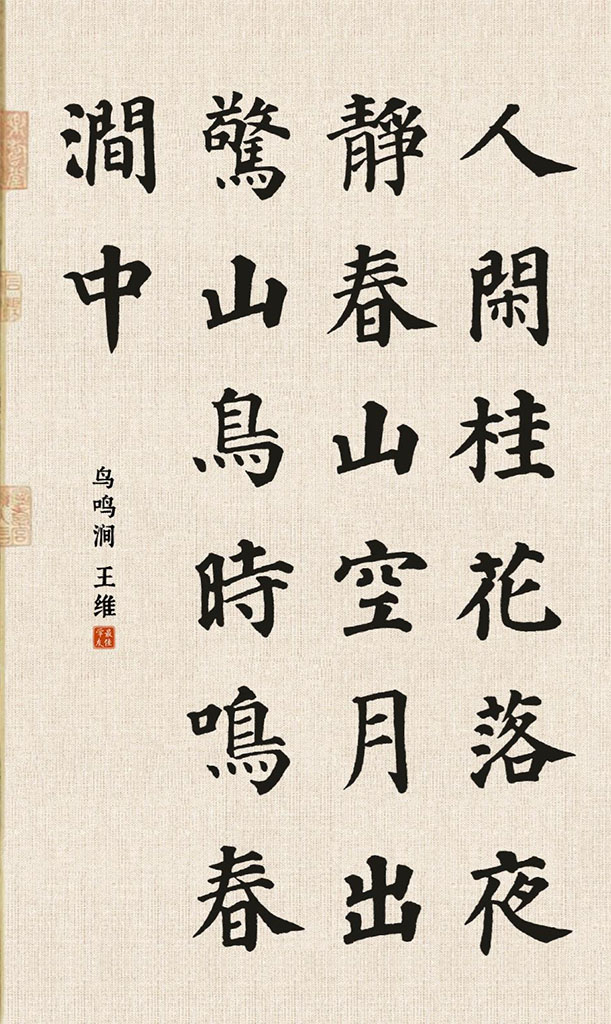 人閑桂花落夜
靜春山空月出
驚山鳥時鳴春
澗中
鸟鸣涧 王维